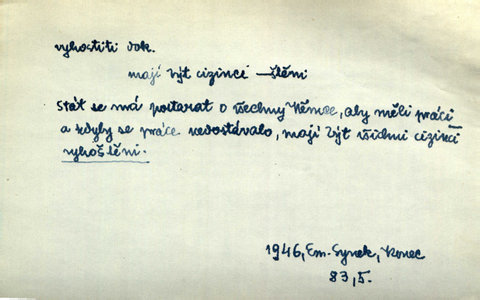 vyhostiti dok.
mají být cizinci —štěni
Stát se má postarat o všechny Němce, aby měli práci
a kdyby se práce nedostávalo, mají být všichni cizinci
vyhoštěni.
1946, Em. Synek, Konec
83,5.